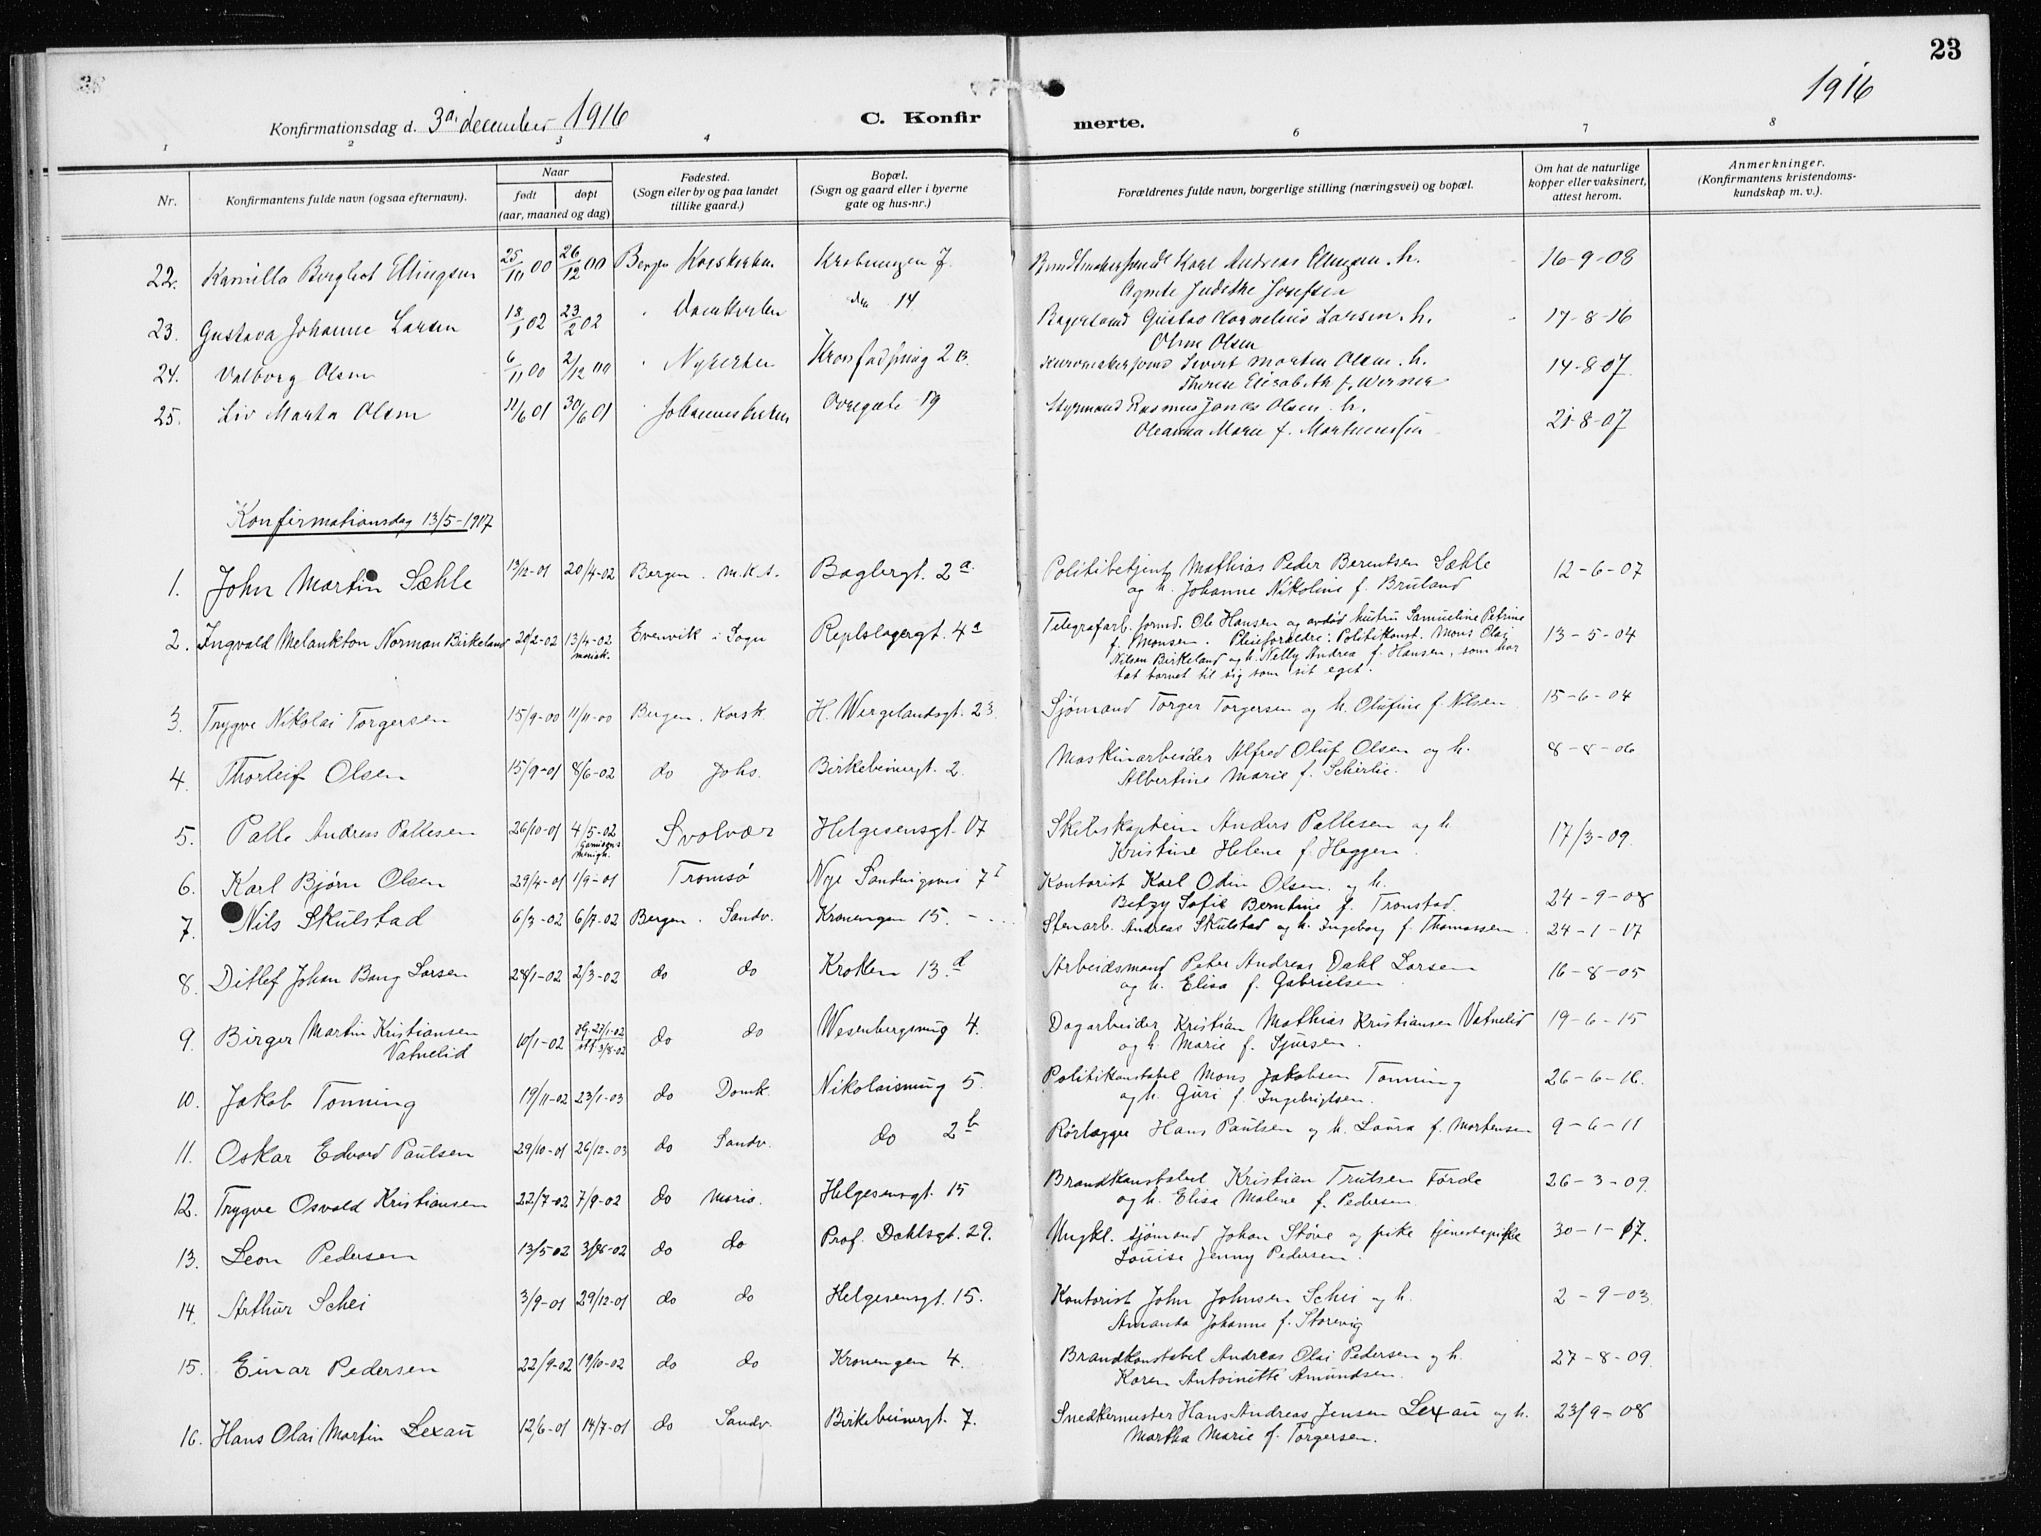 23
1916
Konfirmationsdag d. 3die december 1916
C. Konfir merte.
1 2 3 4 6 7 8
Nr.
Konfirmantens fulde navn (ogsaa efternavn).
Naar
født døpt
(aar, maaned og dag)
Fødested.
(Sogn eller by og paa landet
tillike gaard.)
Bopæl.
(Sogn og gaard eller i byerne
gate og hus-nr.)
Forældrenes fulde navn, borgerlige stilling (næringsvei) og bopæl.
Om hat de naturlige
kopper eller vaksinert,
attest herom.
Anmerkninger.
(Konfirmantens kristendoms-
kundskap m. v.).
22. Kamilla Bergliot Ellingsen 25/10 00 26/12 00 Bergen Korskirken Kroningen 7. Karl Andreas Ellingsen . h. 16-9-08
Agnete Josefsen
23. Gustava Johanne Larsen 18/1 02 23/2 02 Domkirken 14 Gustav Kornelius Larsen . h. 17-8-16
Oline Olsen
24. Valborg Olsen 6/11 00 2/12 00 Nykirken 2 B. Sivert Martin Olsen . h. 14-8-07
Therese Elisabeth f. Werner
25. Liv Marta Olsen 11/6 01 30/6 01 Johanneskirken Øvregate 19 Styrmand Rasmus Jonas Olsen . h. 21-8-07
Oleanna Marie f. Martinussen
Konfirmationsdag 13/5-1917
1. John Martin Sæhle 13/12-01 20/4-02 Bergen . m.k.s. Baglergt. 2a. Politibetjent Mathias Peder Berentsen Sæhle 12-6-07
og h. Johanne Nikoline f. Bruland
2. Ingvald Melankton Norman Birkeland 20/2-02 13/4-02 Evenvik i Sogn Replslagergt. 4a Telegrafarb. formd. Ole Hansen og avdød hustru Samueline Petrine 13-5-04
f. Monsen. Pleieforældre: Politikonst. Mons Olai
Nilsen Birkeland og h. Nelly Andrea f. Hansen, som har
tat barnet til sig som sit eget.
3. Trygve Nikolai Torgersen 15/9-00 11/11-00 Bergen. Korsk. H. Wergelandsgt. 23. Sjømand Torger Torgersen og h. Olufine f. Nilsen 15-6-04
4. Thorleif Olsen 15/9-01 8/6-02 do Johs. Birkebeinergt. 2. Maskinarbeider Alfred Oluf Olsen og h. 8-8-06
Albertine Marie f. Scherlie.
5. Palle Andreas Pallesen 26/10-01 4/5-02 Svolvær Helgesensgt. 17 Skibskaptein Anders Pallesen og h. 17/3-09
Garnisons
menigh. Kristine Helene f. Heggen.
6. Karl Bjørn Olsen 29/4-01 1/9-01 Tromsø Nye Sandviksvei 7I Kontorist Karl Odin Olsen og h. 24-9-08
Betzy Sofie Berntine f. Tronstad.
7. Nils Skulstad 6/3-02 6/7-02 Bergen. Sandv. Kroningen 15. Stenarb. Andreas Skulstad og h. Ingeborg f. Thomassen. 24-1-17
8. Ditlef Johan Bang Larsen 28/1-02 2/3-02 do do Krokken 13.d Arbeidsmand Peter Andreas Dahl Larsen 16-8-05
og h. Elisa f. Gabrielsen
9. Birger Martin Kristiansen 10/1-02 27/1-02 do do Wesenbergsmug 4. Dagarbeider Kristian Mathias Kristiansen Vatnelid 19-6-15
Vatnelid 3/8-02 og h. Marie f. Sjursen.
10. Jakob Tonning 19/11-02 23/1-03 do Domk. Nikolaismug 5. Politikonstabel Mons Jakobsen Tonning 26-6-16.
og h. Guri f. Ingebrigtsen.
11. Oskar Edvard Paulsen 29/10-01 26/12-03 do Sandv. do 2b Rørlægger Hans Paulsen og h. Laura f. Mortensen 9-6-11
12. Trygve Osvald Kristiansen 22/7-02 7/9-02 do Maria. Helgesensgt. 15 Brandkonstabel Kristian Trulsen Førde 26-3-09.
og h. Elisa Malene f. Pedersen
13. Leon Pedersen 13/5 02 3/8-02 do do Prof. Dahlsgt. 29. Ungkl. sjømand Johan Støve og pike tjenestepike 30-1-17.
Louise Jenny Pedersen.
14. Arthur Schei 3/9-01 29/12-01 do do Helgesensgt. 15. Kontorist John Johnsen Schei og h. 2-9-03.
Amanda Johanne f. Storevig
15. Einar Pedersen 22/9-02 19/10-02 do do Kroningen 4. Brandkonstabel Andreas Olai Pedersen og h. 27-8-09.
Karen Antoinette Amundsen.
16. Hans Olai Martin Lexau 12/6-01 14/7-01 do Sandv. Birkebeinergt. 7. Snedkermester Hans Andreas Jensen Lexau og h. 23/9-08
Martha Marie f. Torgersen.